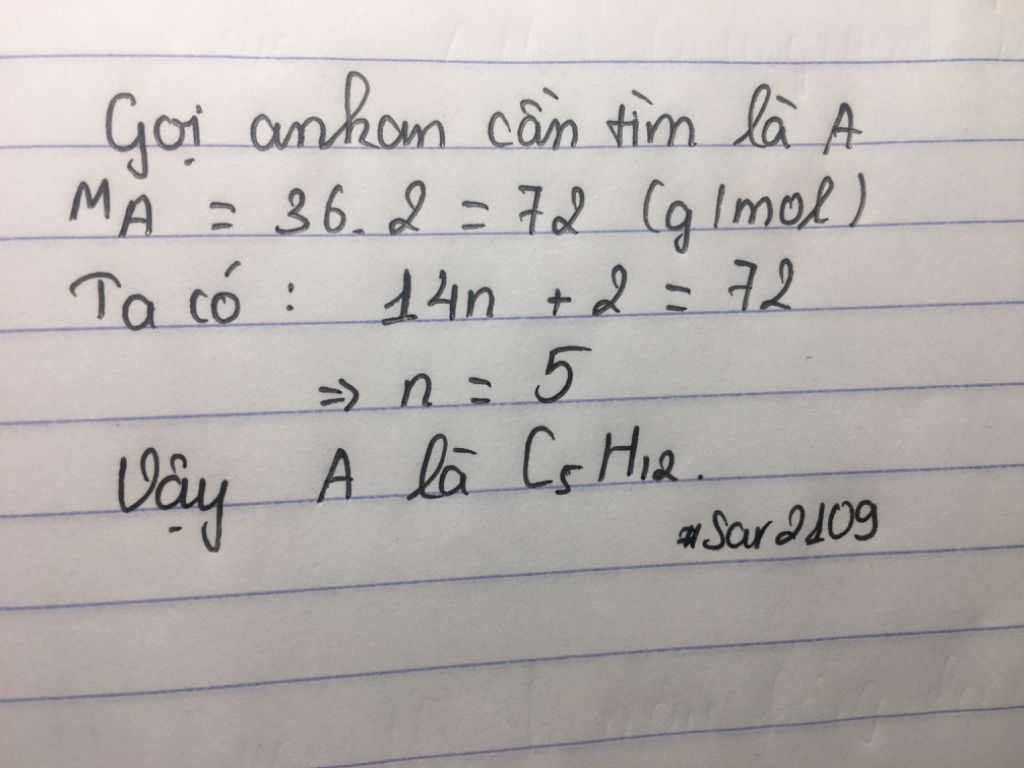 Gọi ankan cần tìm là A
MA = 36.2 = 72 (g/mol)
Ta có: 14n + 2 = 72
=> n = 5
Vậy A là C5H12.
#Sar2109